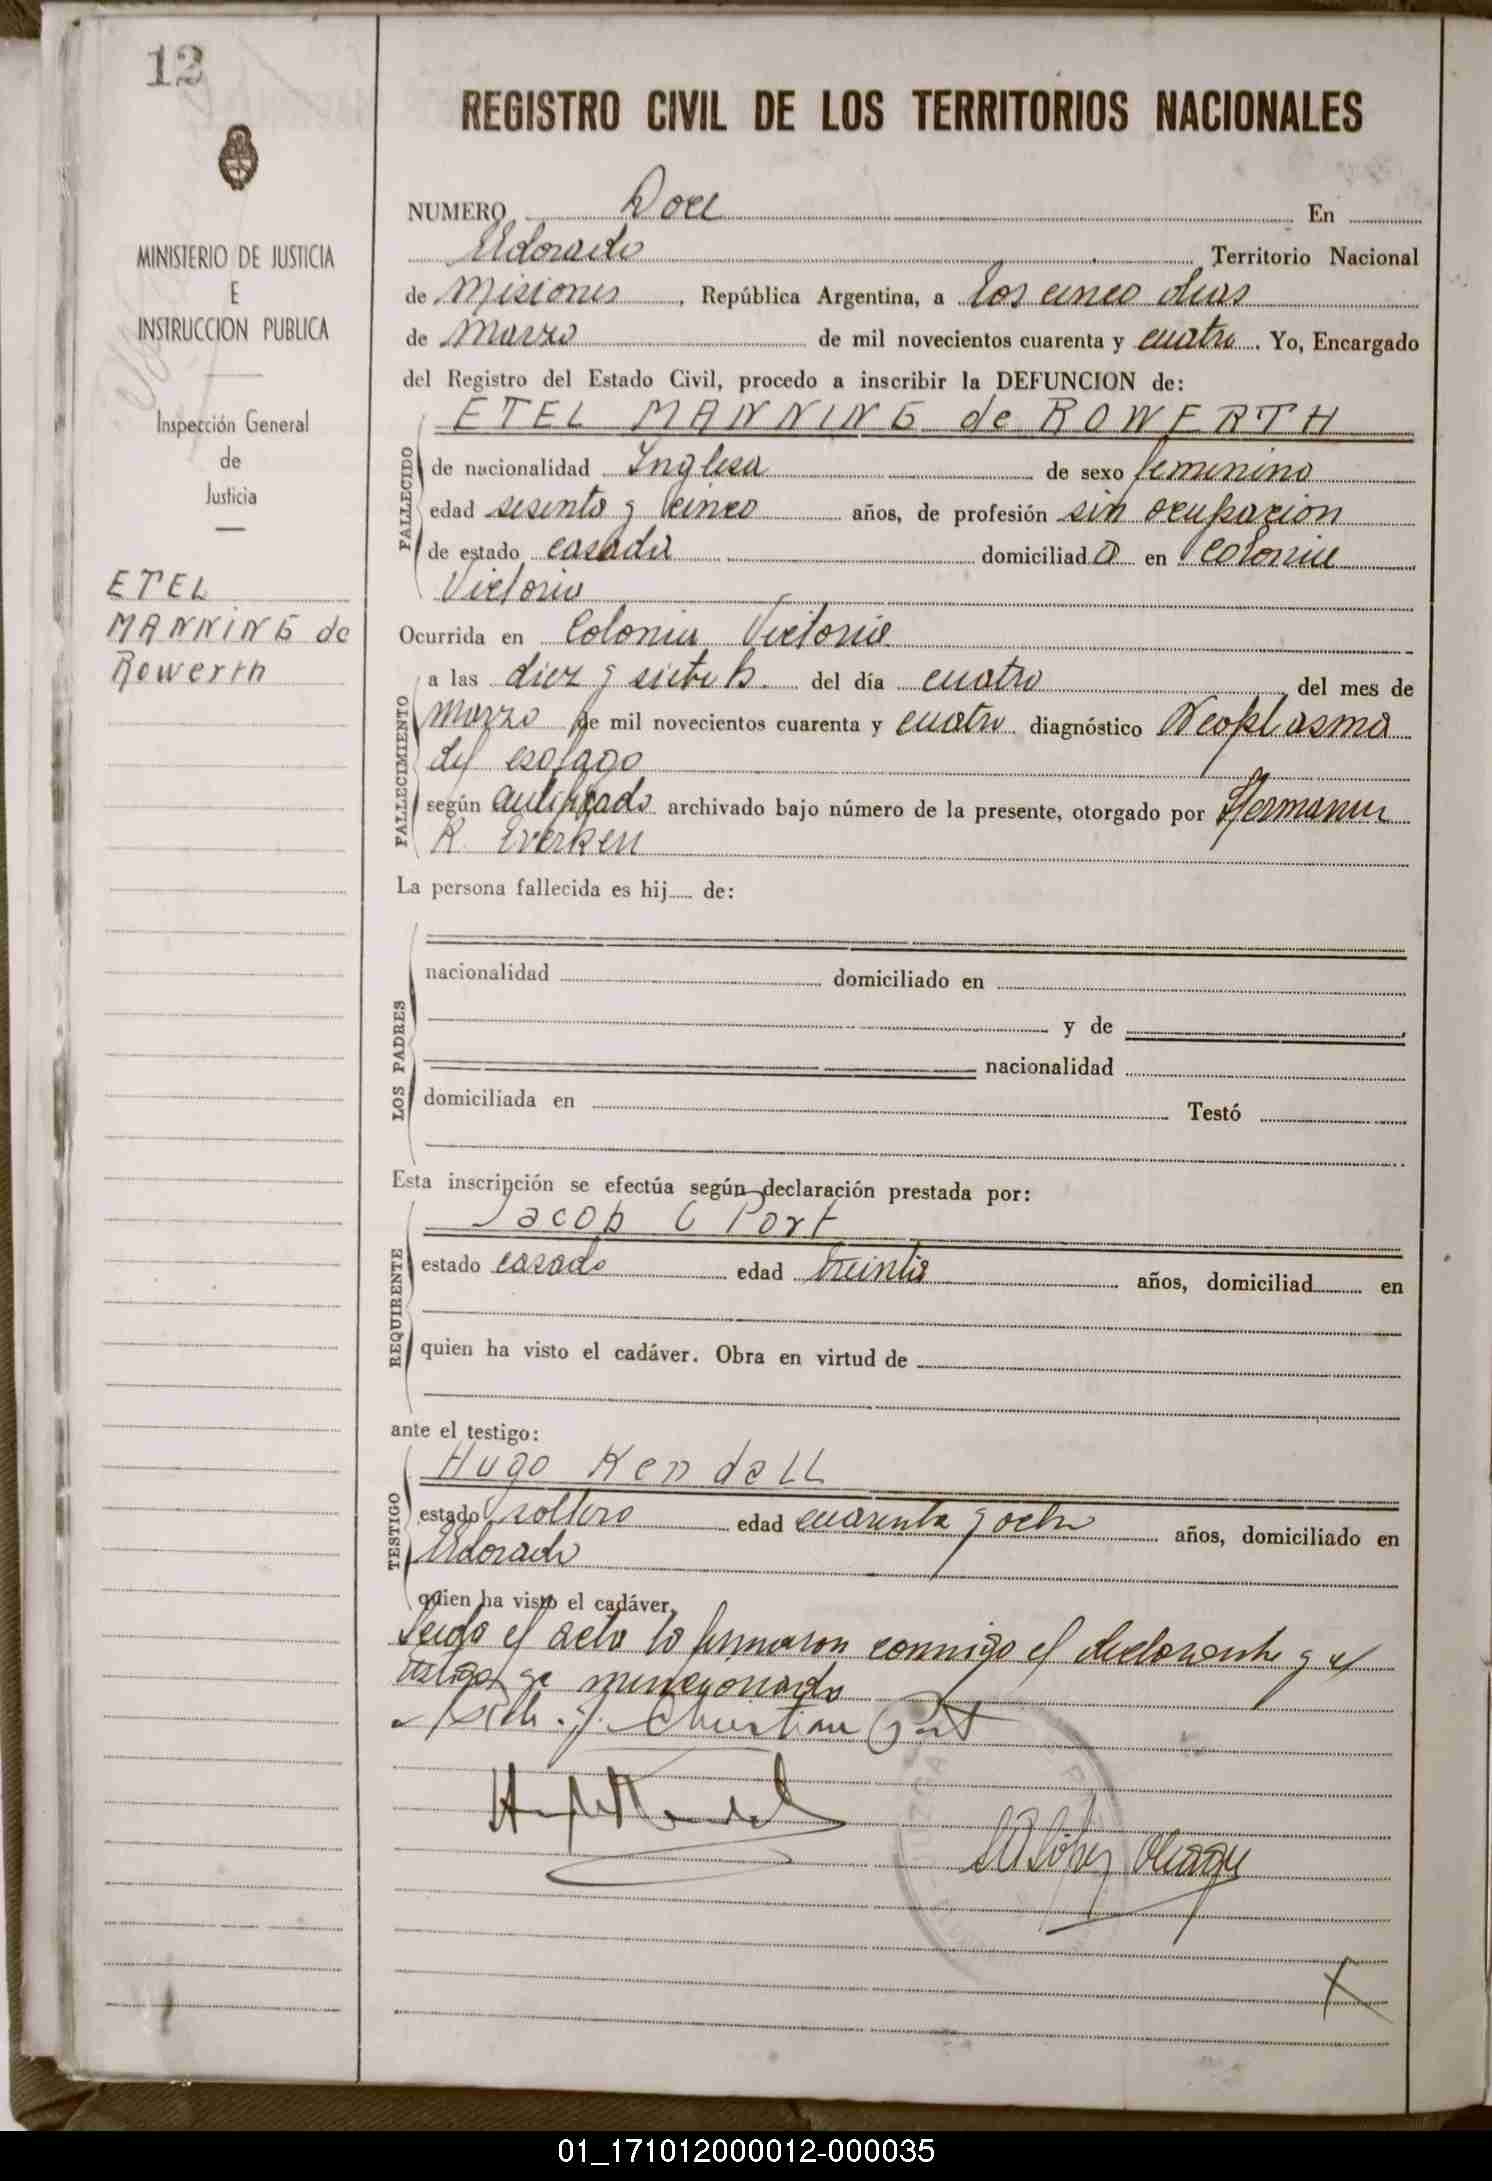 12
MINISTERIO DE JUSTICIA
E
INSTRUCCION PUBLICA
Inspección General
de
Justicia
ETEL
MANNING de
Rowerth
REGISTRO CIVIL DE LOS TERRITORIOS NACIONALES
NUMERO Doce En
Eldorado Territorio Nacional
de Misiones, República Argentina, a los cinco dias
de Marzo de mil novecientos cuarenta y cuatro. Yo, Encargado
del Registro del Estado Civil, procedo a inscribir la DEFUNCION de:
ETEL MANNING de ROWERTH
FALLECIDO
de nacionalidad Inglesa de sexo femenino
edad sesenta y cinco años, de profesión sin ocupacion
de estado casada domiciliada en Colonia
Victoria
Ocurrida en Colonia Victoria
FALLECIMIENTO
a las diez y siete h. del día cuatro del mes de
Marzo de mil novecientos cuarenta y cuatro diagnóstico Neoplasma
del esofago
según certificado archivado bajo número de la presente, otorgado por Hermann
R. Everken
La persona fallecida es hij de:
LOS PADRES
nacionalidad domiciliado en
y de
nacionalidad
domiciliada en Testó
Esta inscripción se efectúa según declaración prestada por:
REQUIRENTE
Jacob C Port
estado casado edad treinta años, domiciliad en
quien ha visto el cadáver. Obra en virtud de
ante el testigo:
TESTIGO
Hugo Kendall
estado soltero edad cuarenta y ocho años, domiciliado en
Eldorado
quien ha visto el cadáver.
Leida el acta la firmaron conmigo el declarante y el
testigo ya mencionado
Christian Port
López
01_171012000012-000035